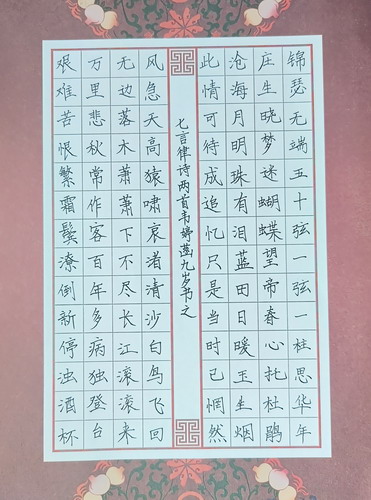 锦瑟无端五十弦一弦一柱思华年
庄生晓梦迷蝴蝶望帝春心托杜鹃
沧海月明珠有泪蓝田日暖玉生烟
此情可待成追忆只是当时已惘然
七言律诗两首韦婷菡九岁书之
风急天高猿啸哀渚清沙白鸟飞回
无边落木萧萧下不尽长江滚滚来
万里悲秋常作客百年多病独登台
艰难苦恨繁霜鬓潦倒新停浊酒杯